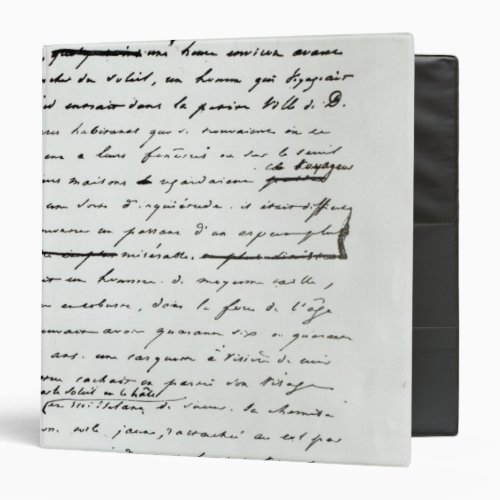 une heure environ avant
du soleil, un homme qui voyageait
entrait dans la petite ville de D.
habitants qui se trouvaient en ce
a leurs fenêtres ou sur le seuil
le voyageur
maisons regardaient
une sorte d'inquiétude. il était difficile
un passant d'un aspect plus
misérable.
un homme de moyenne taille,
et robuste, dans la force de l'âge
avoir quarante six ou quarante
ans. une casquette à visière de cuir
cachait en partie son visage
par le soleil et le hâle
et ruisselant de sueur. sa chemise
toile jaune, rattachée au col par